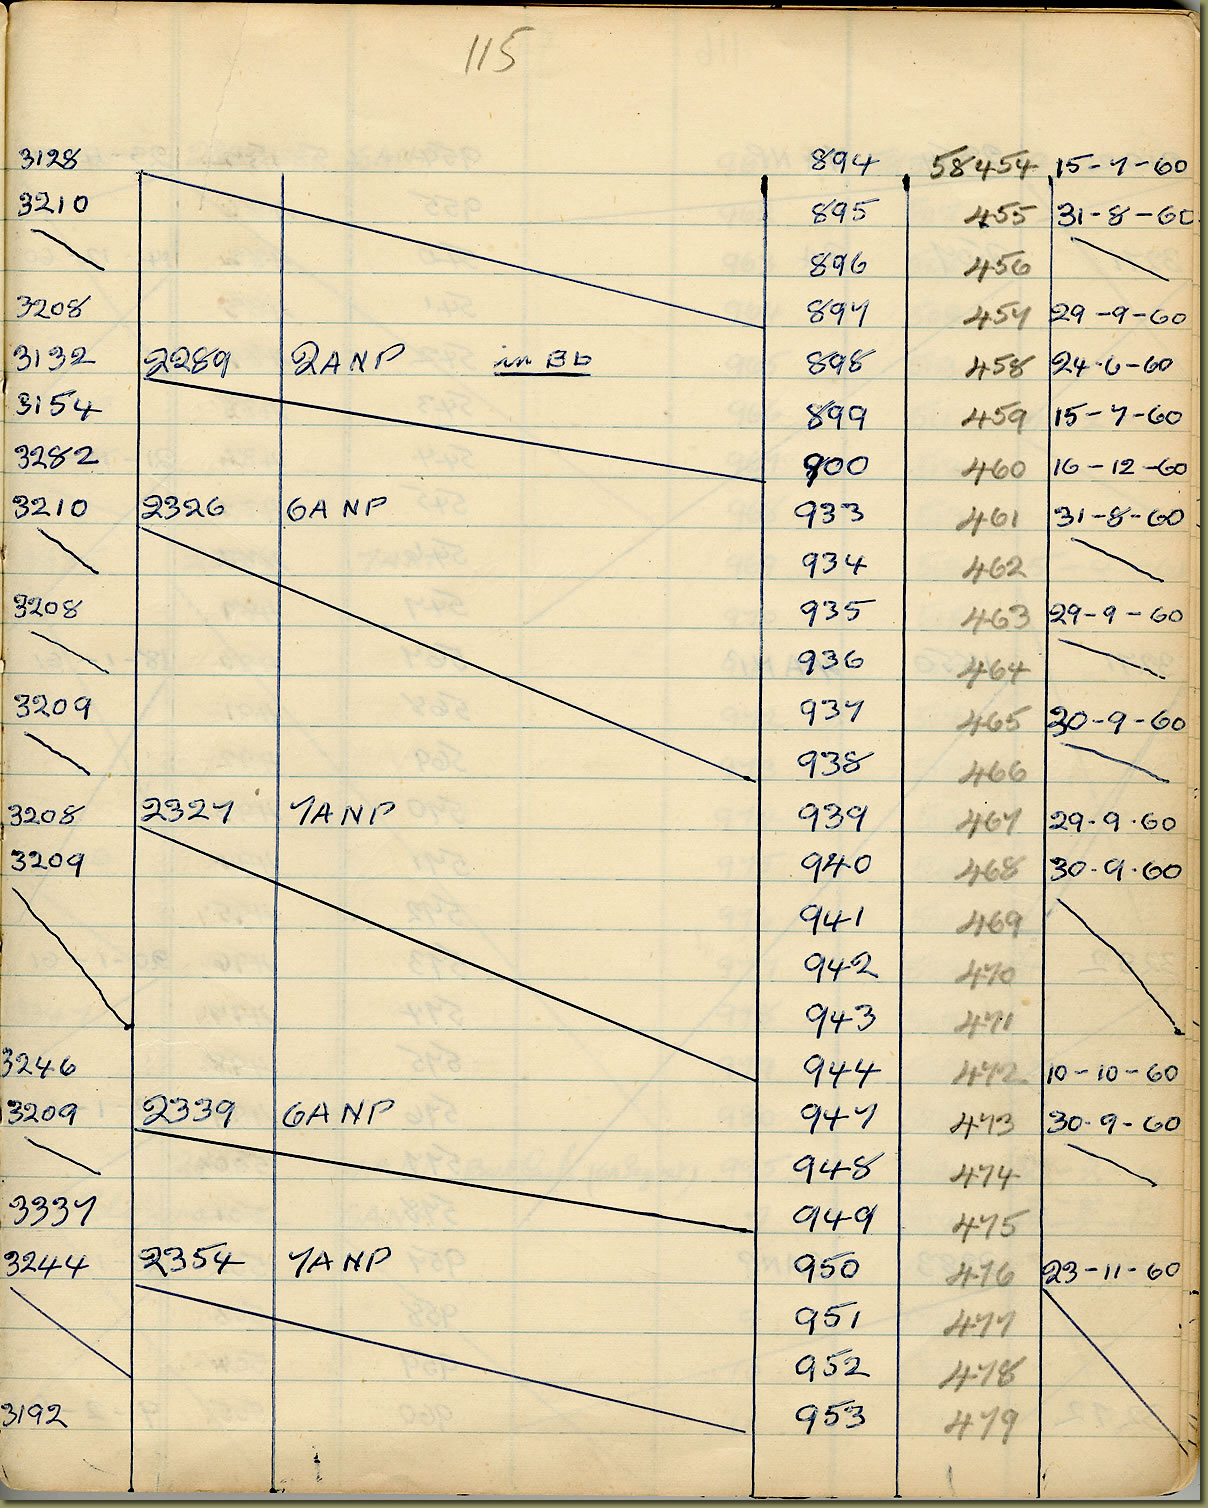 115
3128 894 58454 15-7-60
3210 895 455 31-8-60
896 456
3208 897 457 29-9-60
3132 2289 2ANP in Bb 898 458 24-6-60
3154 899 459 15-7-60
3282 900 460 16-12-60
3210 2326 6ANP 933 461 31-8-60
934 462
3208 935 463 29-9-60
936 464
3209 937 465 30-9-60
938 466
3208 2327 7ANP 939 467 29-9-60
3209 940 468 30-9-60
941 469
942 470
943 471
3246 944 472 10-10-60
3209 2339 6ANP 947 473 30-9-60
948 474
3337 949 475
3244 2354 7ANP 950 476 23-11-60
951 477
952 478
3192 953 479